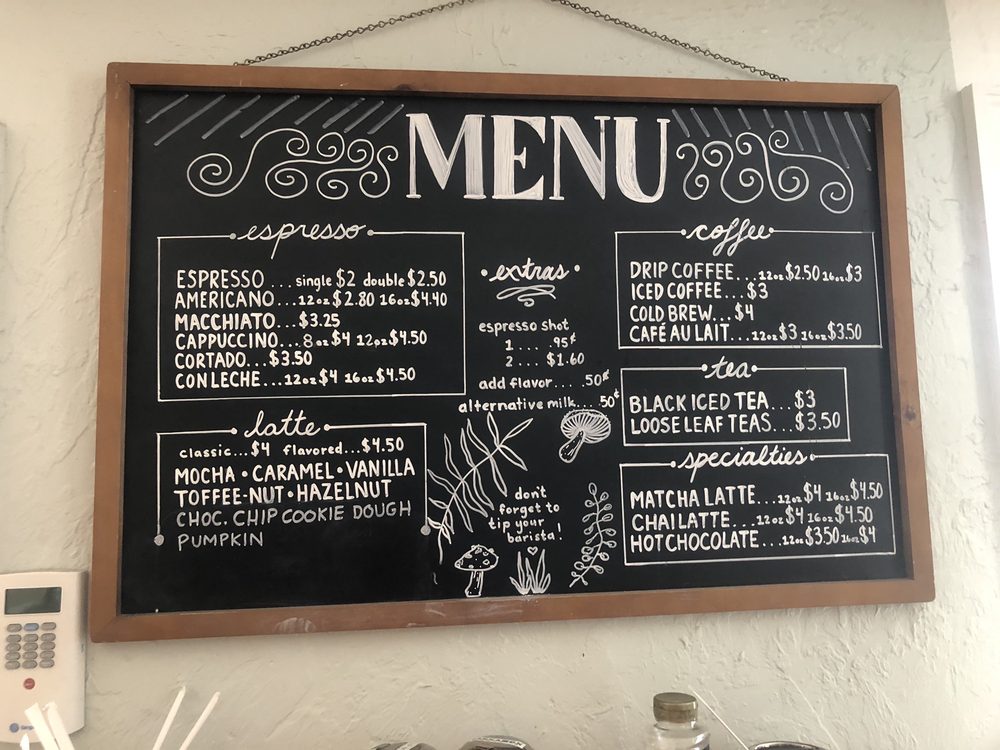 MENU
espresso
ESPRESSO ... single $2 double $2.50
AMERICANO...12oz $2.80 16oz $4.40
MACCHIATO...$3.25
CAPPUCCINO...8oz $4 12oz $4.50
CORTADO...$3.50
CON LECHE...12oz $4 16oz $4.50
latte
classic...$4 flavored...$4.50
MOCHA • CARAMEL • VANILLA
TOFFEE-NUT • HAZELNUT
CHOC. CHIP COOKIE DOUGH
PUMPKIN
• extras •
espresso shot
1 .... .95¢
2 ... $1.60
add flavor.... .50¢
alternative milk... .50¢
don't
forget to
tip your
barista!
coffee
DRIP COFFEE...12oz $2.50 16oz $3
ICED COFFEE...$3
COLD BREW...$4
CAFÉ AU LAIT...12oz $3 16oz $3.50
tea
BLACK ICED TEA...$3
LOOSE LEAF TEAS...$3.50
specialties
MATCHA LATTE...12oz $4 16oz $4.50
CHAI LATTE...12oz $4 16oz $4.50
HOT CHOCOLATE...12oz $3.50 16oz $4